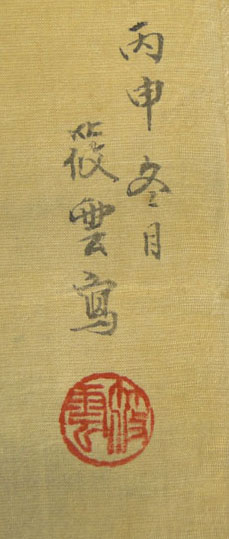 丙申冬月
筱雲寫
筱雲